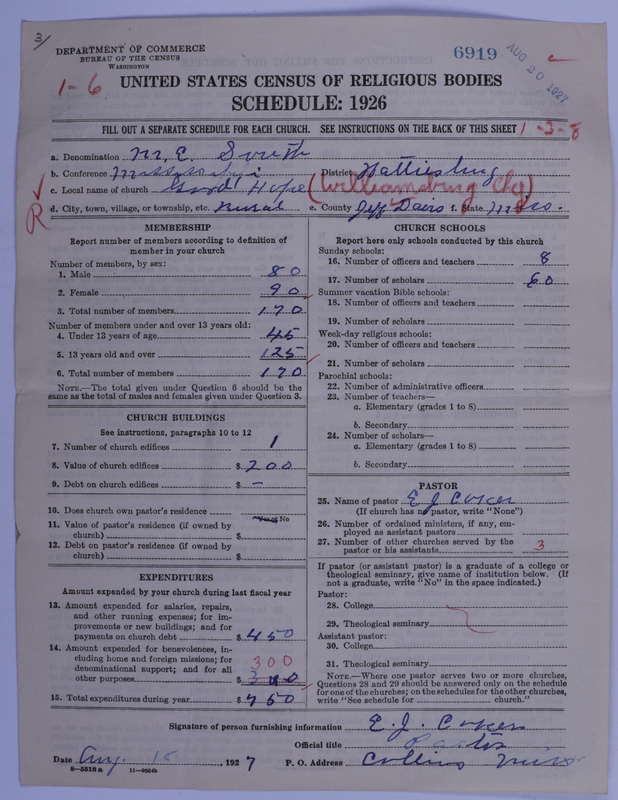 3/
DEPARTMENT OF COMMERCE
BUREAU OF THE CENSUS
WASHINGTON
6919
AUG 20 1927
1-6
UNITED STATES CENSUS OF RELIGIOUS BODIES
SCHEDULE: 1926
FILL OUT A SEPARATE SCHEDULE FOR EACH CHURCH. SEE INSTRUCTIONS ON THE BACK OF THIS SHEET 1-3-8
a. Denomination M. E. South
b. Conference Mississippi District Hattiesburg
c. Local name of church Good Hope (Williamsburg Chg)
R
d. City, town, village, or township, etc. Rural e. County Jeff Davis f. State Miss.
MEMBERSHIP
Report number of members according to definition of
member in your church
Number of members, by sex:
1. Male 80
2. Female 90
3. Total number of members 170
Number of members under and over 13 years old:
4. Under 13 years of age 45
5. 13 years old and over 125
6. Total number of members 170
NOTE.—The total given under Question 6 should be the
same as the total of males and females given under Question 3.
CHURCH BUILDINGS
See instructions, paragraphs 10 to 12
7. Number of church edifices 1
8. Value of church edifices $ 200
9. Debt on church edifices $ —
10. Does church own pastor's residence
No
11. Value of pastor's residence (if owned by
church) $
12. Debt on pastor's residence (if owned by
church) $
EXPENDITURES
Amount expended by your church during last fiscal year
13. Amount expended for salaries, repairs,
and other running expenses; for im-
provements or new buildings; and for
payments on church debt $ 450
14. Amount expended for benevolences, in-
cluding home and foreign missions; for
denominational support; and for all 300
other purposes $
15. Total expenditures during year $ 750
CHURCH SCHOOLS
Report here only schools conducted by this church
Sunday schools:
16. Number of officers and teachers 8
17. Number of scholars 60
Summer vacation Bible schools:
18. Number of officers and teachers
19. Number of scholars
Week-day religious schools:
20. Number of officers and teachers
21. Number of scholars
Parochial schools:
22. Number of administrative officers
23. Number of teachers—
a. Elementary (grades 1 to 8)
b. Secondary
24. Number of scholars—
a. Elementary (grades 1 to 8)
b. Secondary
PASTOR
25. Name of pastor E J Coker
(If church has no pastor, write "None")
26. Number of ordained ministers, if any, em-
ployed as assistant pastors
27. Number of other churches served by the
pastor or his assistants 3
If pastor (or assistant pastor) is a graduate of a college or
theological seminary, give name of institution below. (If
not a graduate, write "No" in the space indicated.)
Pastor:
28. College
29. Theological seminary
Assistant pastor:
30. College
31. Theological seminary
NOTE.—Where one pastor serves two or more churches,
Questions 28 and 29 should be answered only on the schedule
for one of the churches; on the schedules for the other churches,
write "See schedule for church."
Signature of person furnishing information E. J. Coker
Official title Pastor
Date Aug. 15, 1927 P. O. Address Collins Miss
8—5518a 11—9024b